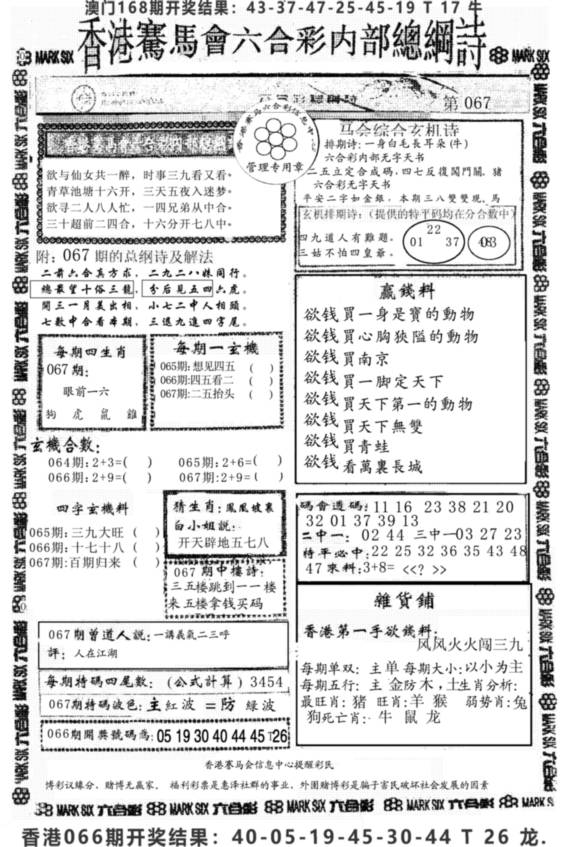 澳门168期开奖结果：43-37-47-25-45-19 T 17 牛
香港賽馬會六合彩内部總綱詩
MARK SIX
MARK SIX
第 067
香港赛马会六合彩信息中心
管理专用章
欲与仙女共一醉，时事三九看又看。
青草池塘十六开，三天五夜入迷梦。
欲寻二人八人忙，一四兄弟从中合。
三十超前二四合，十六分开七八中。
马会综合玄机诗
排期诗：一身白毛長耳朵(牛)
六合彩内部无字天书
二五立定合成码，四七反復閱鬥關。豬
六合彩无字天书
平安二字如金銀，本期三八雙雙現。馬
玄机排期诗：(提供的特平码均在分合数中)
四九道人有難題。
三姑不怕四皇爺。
22
01 37
附：067 期的总纲诗及解法
二前六合真方求，二九二八妹同行。
總最望十俗三龍，分后見五四六虎。
開三一月美出相，小七二中人相頭。
七數中合看本期，三退九進四字尾。
每期四生肖
067 期：
眼前一六
狗 虎 鼠 雞
每期一玄機
065期：想见四五 ( )
066期：四五看二 ( )
067期：二五抬头 ( )
贏錢料
欲钱買一身是寶的動物
欲钱買心胸狹隘的動物
欲钱買南京
欲钱買一脚定天下
欲钱買天下第一的動物
欲钱買天下無雙
欲钱買青蛙
欲钱看萬裏長城
玄機合数：
064期：2+3=( ) 065期：2+6=( )
066期：2+9=( ) 067期：2+9=( )
四字玄機料
065期：三九大旺 ( )
066期：十七十八 ( )
067期：百期归来 ( )
猜生肖：鳳凰披裏
白小姐說：
开天辟地五七八
067 期中樓詩：
三五楼跳到一一楼
来五楼拿钱买码
碼會透碼：11 16 23 38 21 20
32 01 37 39 13
二中一：02 44 三中一03 27 23
特平必中：22 25 32 36 35 43 48
47來料：3+8= <<? >>
067期曾道人說：一講義氣二三呼
評：人在江湖
每期特碼四尾数：(公式計算) 3454
067期特碼波色：主紅波 =防 緑波
066期開獎號碼爲：05 19 30 40 44 45 T26
雜貨鋪
香港第一手欲錢料：
风风火火闯三九
每期单双：主单每期大小：以小为主
每期五行：主金防木，土生肖分析：
最旺肖：猪 旺肖：羊 猴 弱势肖：兔
狗死亡肖：牛 鼠 龙
香港赛马会信息中心提醒彩民
博彩议缘分，赌博无赢家。福利彩票是惠泽社群的事业，外围赌博彩是骗子害民破坏社会发展的因素
MARK SIX 六合彩 MARK SIX 六合彩 MARK SIX 六合彩 MARK SIX 六合彩 MARK SIX
香港066期开奖结果：40-05-19-45-30-44 T 26 龙.